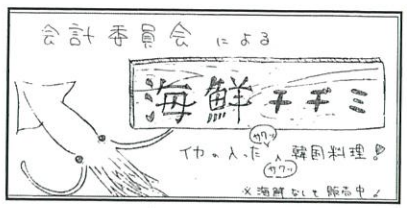 会計委員会による
海鮮チヂミ
イカの入った韓国料理!
サクッ
サクッ
※海鮮なしも販売中!